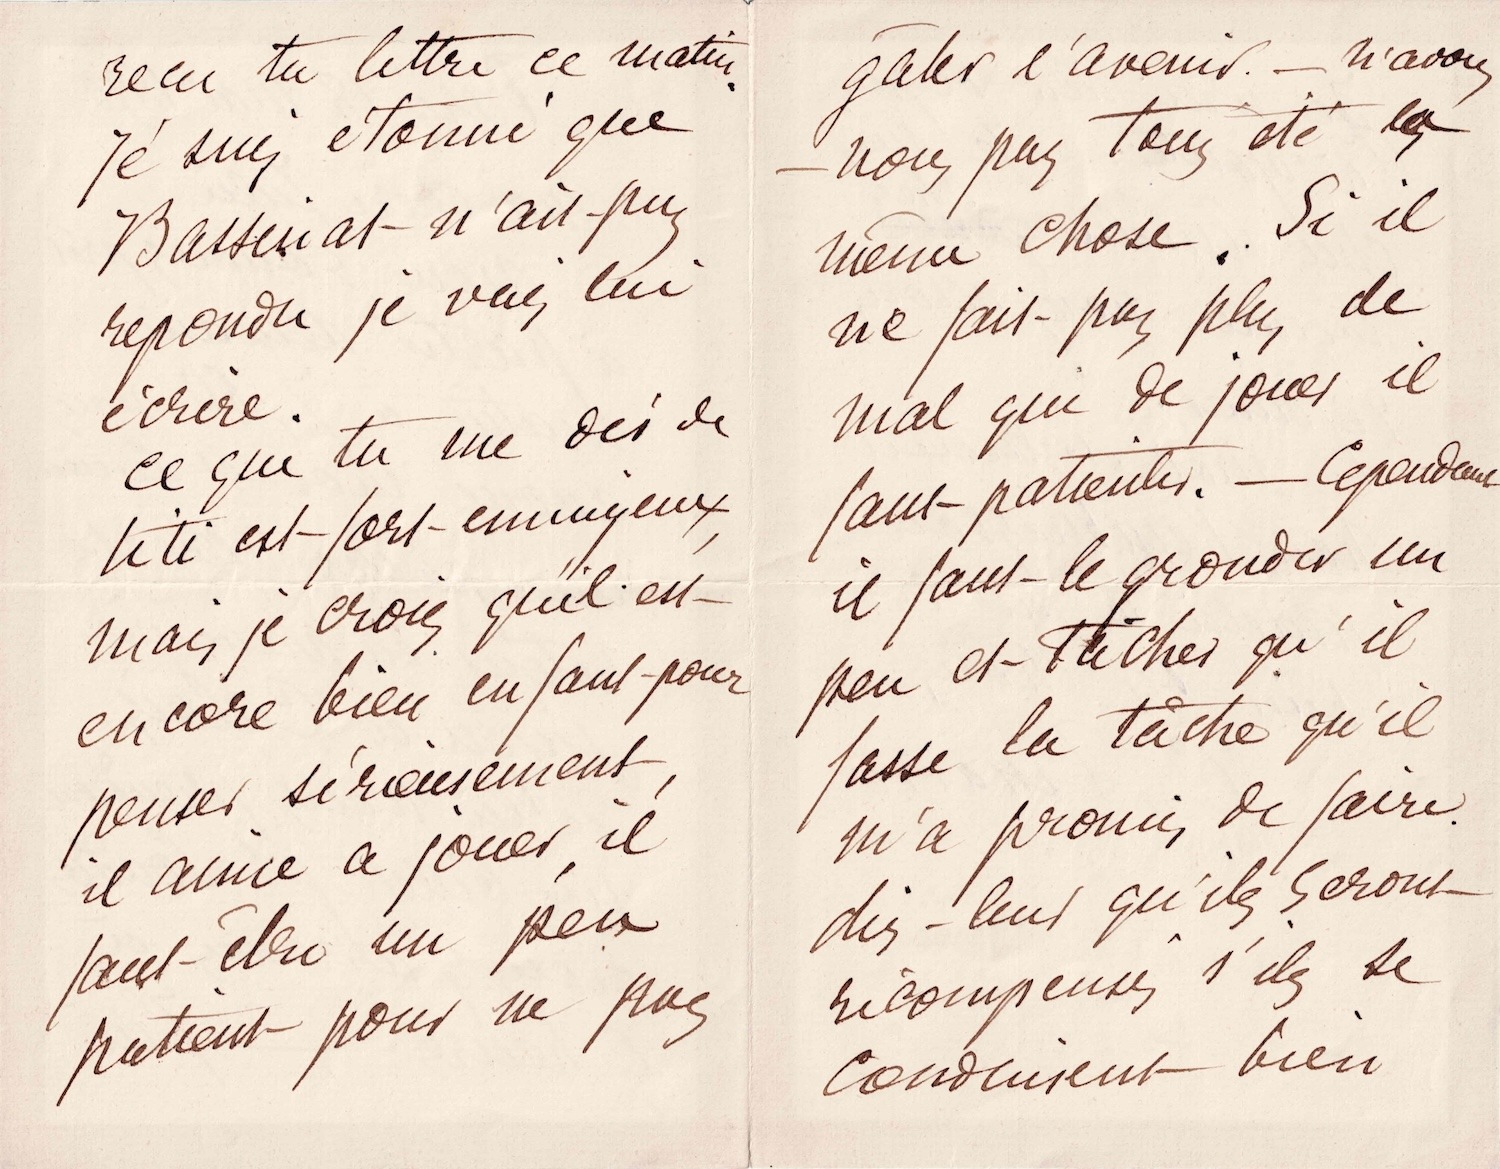 recu ta lettre ce matin.
Je suis etonné que
Bassinat n'ait pas
repondu je vais lui
écrire.
ce que tu me dis de
titi est fort ennuyeux,
mais je crois qu'il est
encore bien enfant pour
penser sérieusement,
il aime a jouer, il
faut être un peu
patient pour ne pas
gâter l'avenir. — N'avons
— nous pas tous été la
même chose. Si il
ne fait pas plus de
mal que de jouer il
faut patienter. — Cependant
il faut le gronder un
peu et tâcher qu'il
fasse la tâche qu'il
m'a promis de faire.
dis-leur qu'ils seront
récompensés s'ils se
conduisent bien